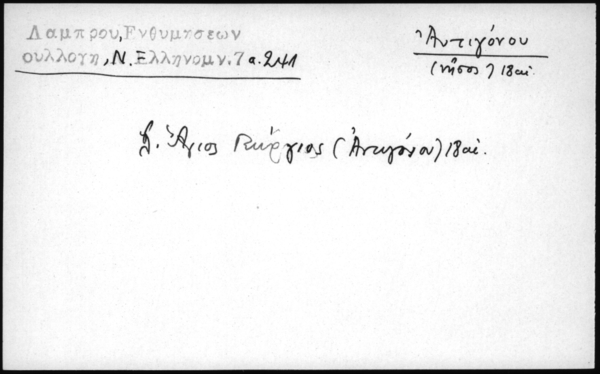 Λαμπρου, Ενθυμησεων
συλλογη, Ν. Ελληνομν. 7 α. 241
Ἀντιγόνου
(νῆσος) 18 αἰ.
Ἅγιος Γεώργιος (Ἀντιγόνου) 18 αἰ.